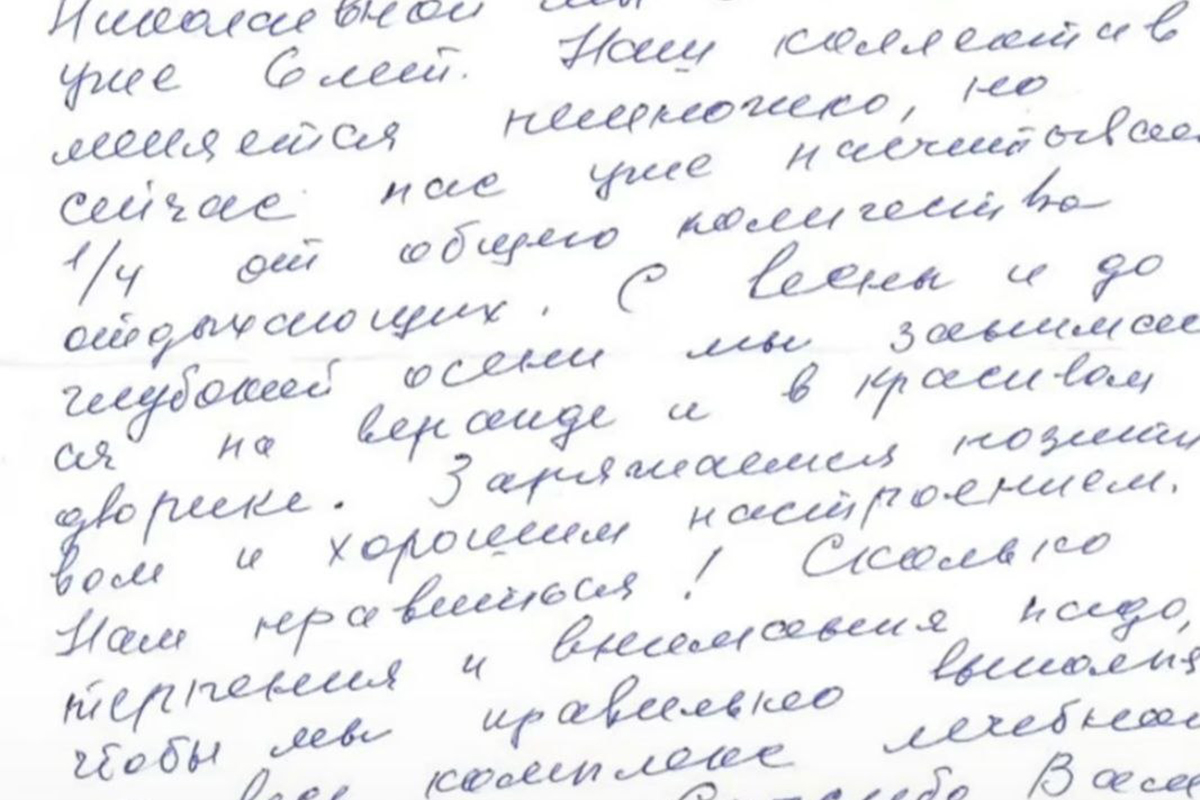 Николаевной мы
уже 6 лет. Наш коллектив
меняется немножко, но
сейчас нас уже насчитывае
1/4 от общего количества
отдыхающих. С весны и до
глубокой осени мы занимае
ся на веранде и в красивом
дворике. Заряжаемся позити
вом и хорошим настроением.
Нам нравиться! Сколько
терпения и внимания надо,
чтобы мы правильно выполня
весь комплекс лечебной
Спасибо Вам